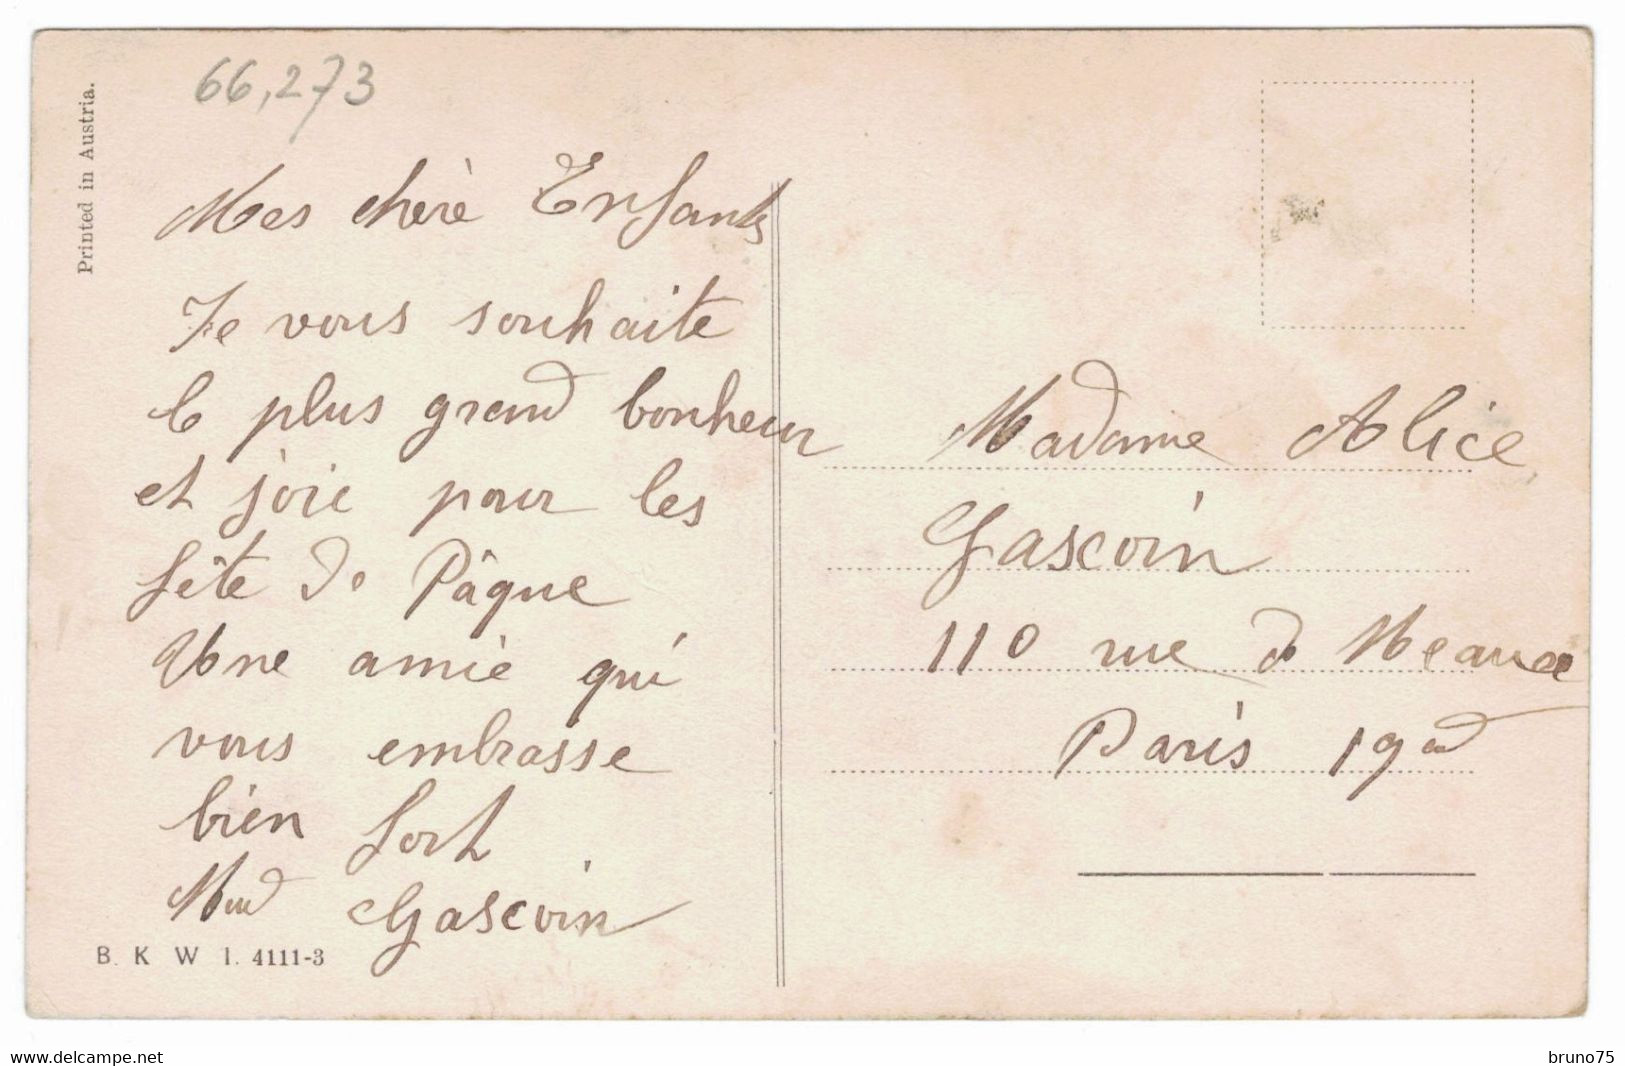 Printed in Austria.
66,273
Mes chère Enfants
Je vous souhaite
le plus grand bonheur
et joie pour les
fête de Pâque
Une amie qui
vous embrasse
bien fort
Gascoin
B. K. W. I. 4111-3
Madame Alice
Gascoin
110 rue de Meaux
Paris 19
www.delcampe.net
bruno75